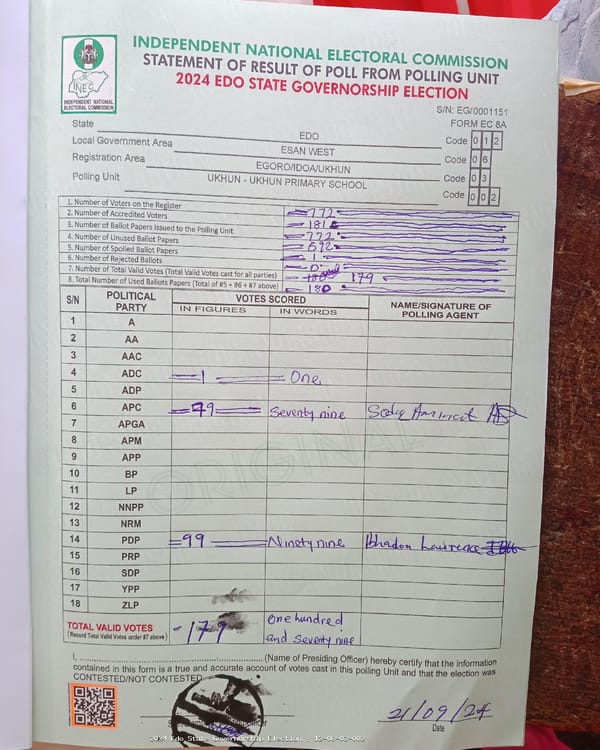 INDEPENDENT NATIONAL ELECTORAL COMMISSION
STATEMENT OF RESULT OF POLL FROM POLLING UNIT
2024 EDO STATE GOVERNORSHIP ELECTION
INEC
INDEPENDENT NATIONAL
ELECTORAL COMMISSION
S/N: EG/0001151
FORM EC 8A
State EDO Code 0 1 2
Local Government Area ESAN WEST Code 0 6
Registration Area EGORO/IDOA/UKHUN Code 0 3
Polling Unit UKHUN - UKHUN PRIMARY SCHOOL Code 0 0 2
1. Number of Voters on the Register 772
2. Number of Accredited Voters 181
3. Number of Ballot Papers Issued to the Polling Unit 772
4. Number of Unused Ballot Papers 592
5. Number of Spoiled Ballot Papers 1
6. Number of Rejected Ballots 0
7. Number of Total Valid Votes (Total Valid Votes cast for all parties) 179
8. Total Number of Used Ballots Papers (Total of #5 + #6 + #7 above) 180
S/N POLITICAL PARTY VOTES SCORED NAME/SIGNATURE OF POLLING AGENT
IN FIGURES IN WORDS
1 A
2 AA
3 AAC
4 ADC 1 One
5 ADP
6 APC 79 Seventy nine
7 APGA
8 APM
9 APP
10 BP
11 LP
12 NNPP
13 NRM
14 PDP 99 Ninety nine Lawrence
15 PRP
16 SDP
17 YPP
18 ZLP
ORIGINAL
TOTAL VALID VOTES 179 One hundred
(Record Total Valid Votes under #7 above) and seventy nine
I, (Name of Presiding Officer) hereby certify that the information
contained in this form is a true and accurate account of votes cast in this polling Unit and that the election was
CONTESTED/NOT CONTESTED
21/09/24
Date
2024 Edo State Governorship Election - 12-06-03-002